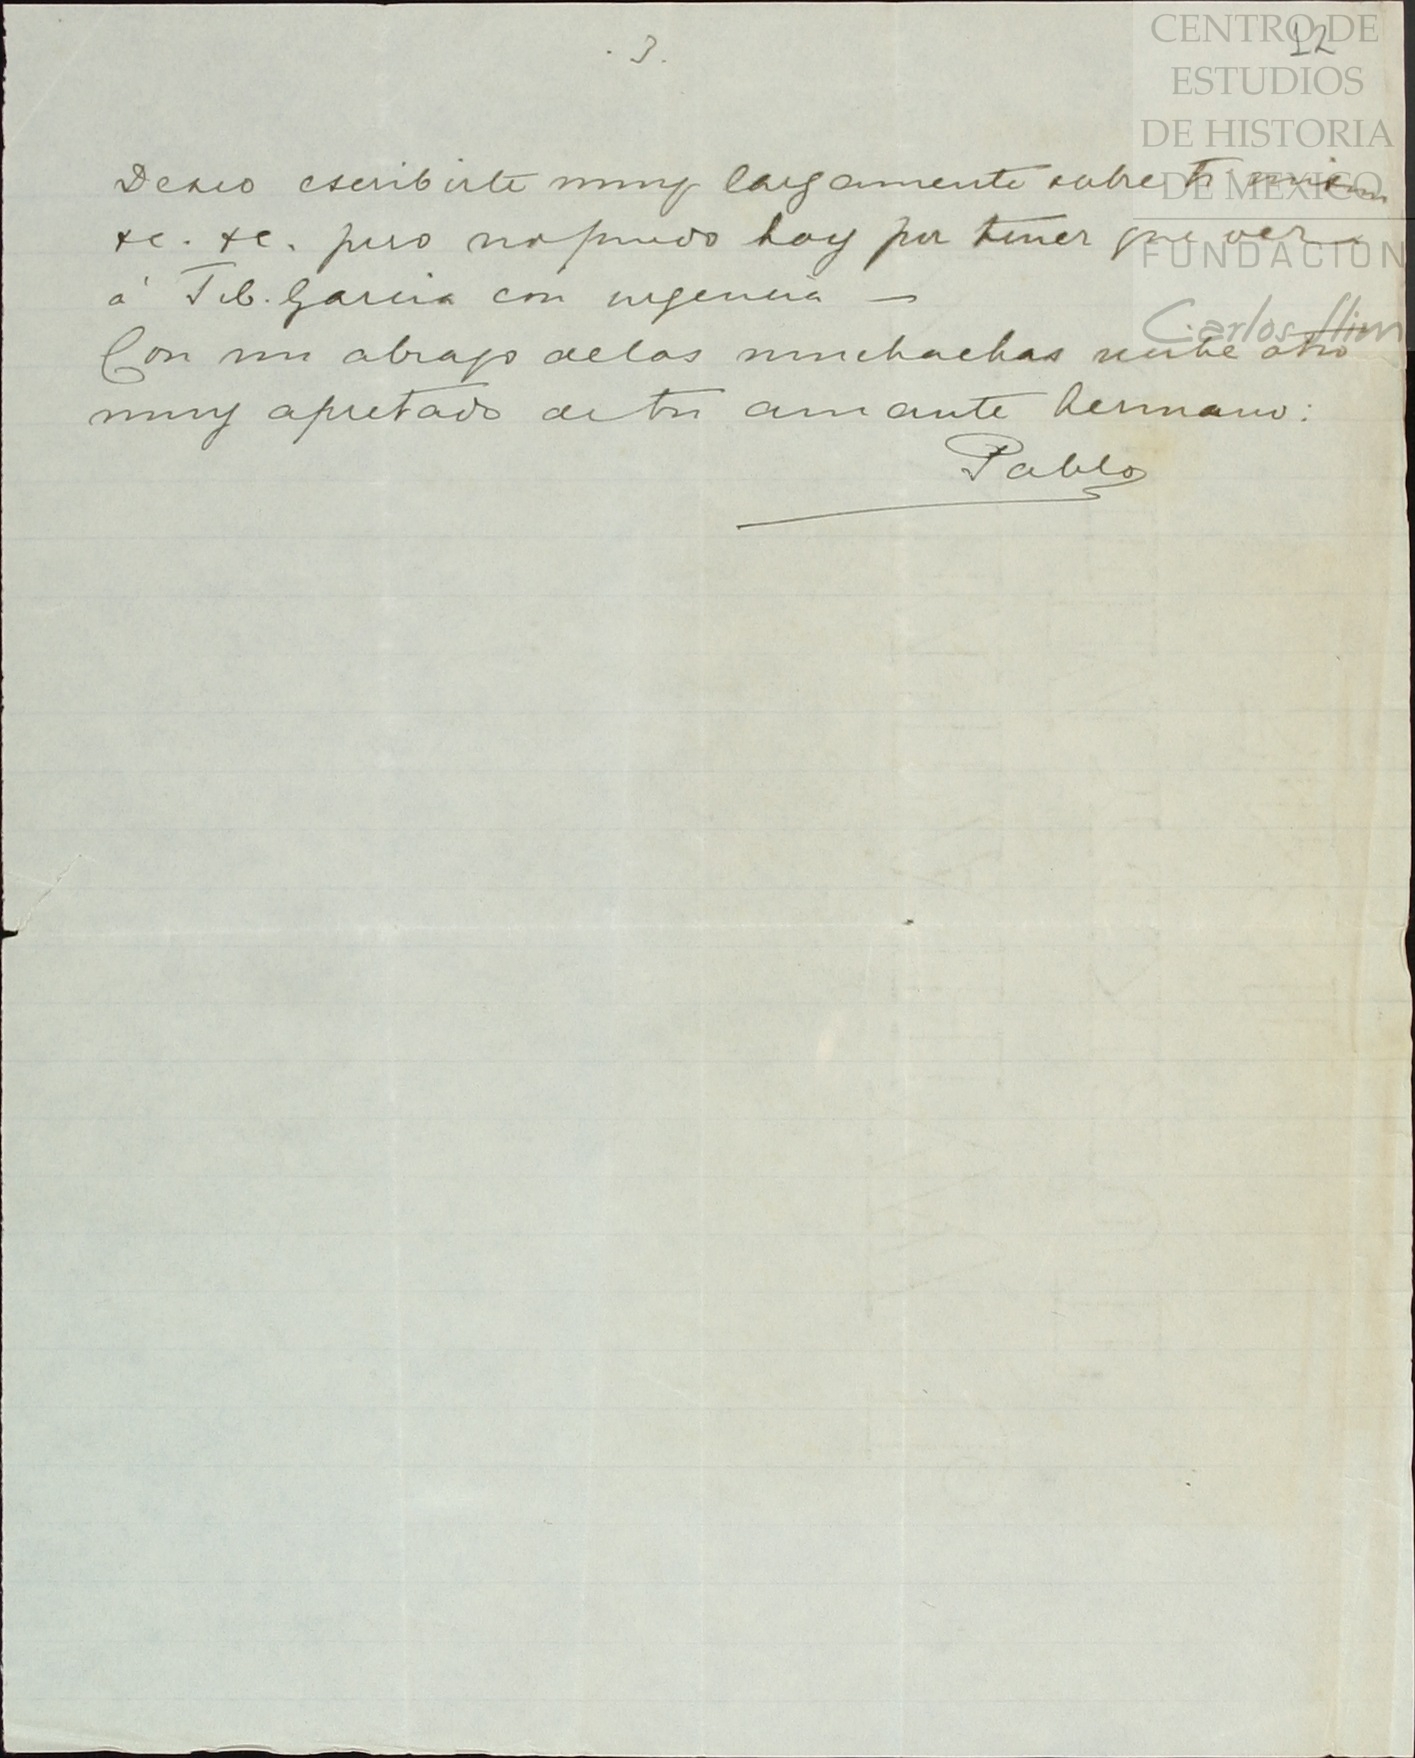 . 3.
12
CENTRO DE
ESTUDIOS
DE HISTORIA
DE MEXICO
FUNDACIÓN
Carlos Slim
Deseo escribirte muy largamente sobre ti
&c. &c. pero no puedo hoy por tener que ver
á T. C. Garcia con urgencia —
Con un abrazo de las muchachas recibe otro
muy apretado de tu amante hermano:
Pablo